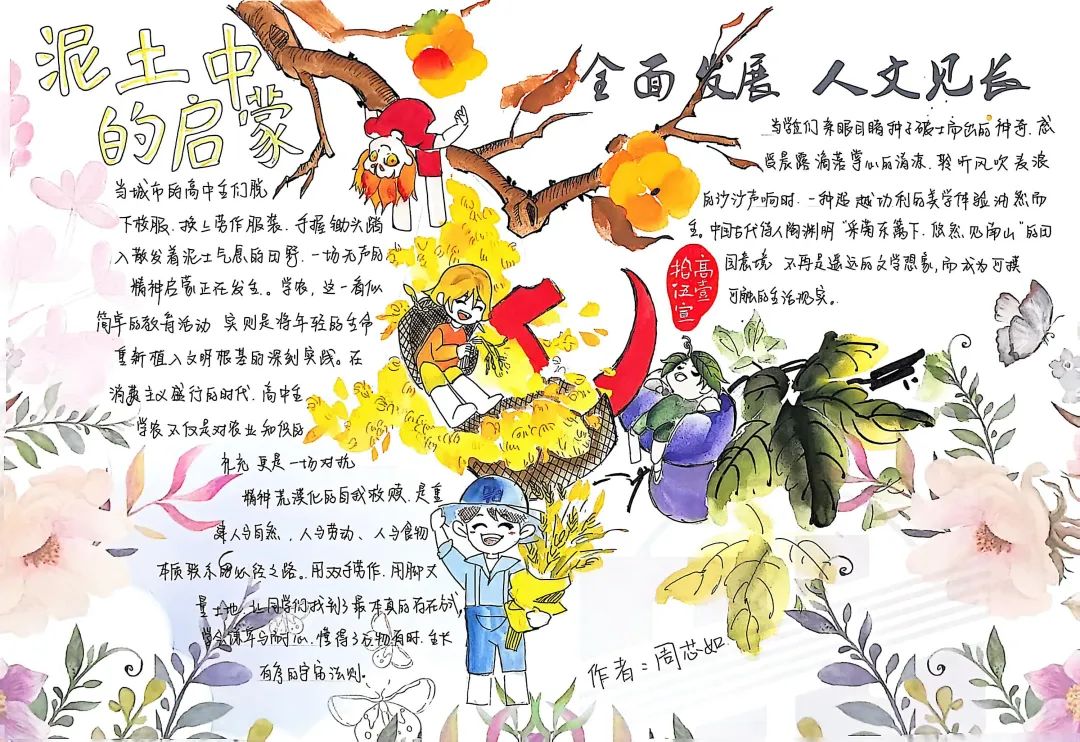 泥土中
的启蒙
当城市的高中生们脱
下校服、换上劳作服装、手握锄头踏
入散发着泥土气息的田野，一场无声的
精神启蒙正在发生。学农，这一看似
简单的教育活动 实则是将年轻的生命
重新植入文明根基的深刻实践。在
消费主义盛行的时代、高中生
学农不仅是对农业知识的
补充 更是一场对抗
精神荒漠化的自我救赎、是重
建人与自然、人与劳动、人与食物
本质联系的必经之路。用双手劳作、用脚丈
量土地，让同学们找到了最本真的存在方式，
学会谦卑与耐心、懂得了万物有时、生长
有序的宇宙法则。
全面发展 人文见长
当学生们亲眼目睹种子破土而出的神奇、感
受晨露滴落掌心的清凉、聆听风吹麦浪
的沙沙声响时、一种超越功利的美学体验油然而
生。中国古代诗人陶渊明“采菊东篱下，悠然见南山”的田
园意境 不再是遥远的文学想象，而成为可摸
可触的生活现实。
高壹
拾伍宣
作者：周芯如